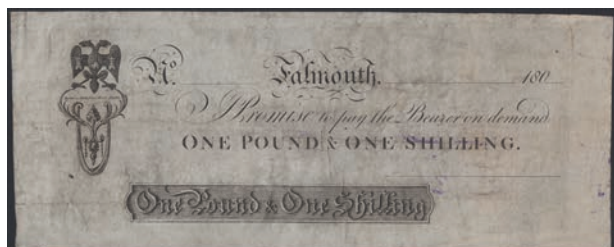 No. Falmouth. 180
I Promise to pay the Bearer on demand
ONE POUND & ONE SHILLING.
One Pound & One Shilling